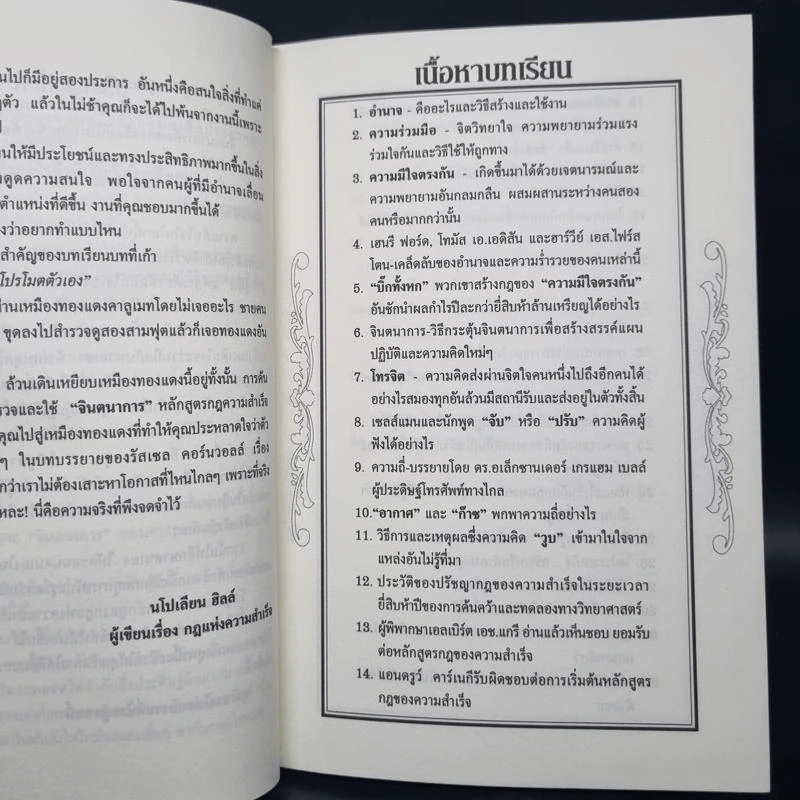 นไปก็มีอยู่สองประการ อันหนึ่งคือสนใจสิ่งที่ทำแค่
ตัว แล้วในไม่ช้าคุณก็จะได้ไปพ้นจากงานนี้เพราะ
นให้มีประโยชน์และทรงประสิทธิภาพมากขึ้นในสิ่ง
งดูดความสนใจ พอใจจากคนผู้ที่มีอำนาจเลื่อน
ตำแหน่งที่ดีขึ้น งานที่คุณชอบมากขึ้นได้
งว่าอยากทำแบบไหน
สำคัญของบทเรียนบทที่เก้า
โปรโมตตัวเอง”
่านเหมืองทองแดงคาลูเมทโดยไม่เจออะไร ชายคน
ขุดลงไปสำรวจดูสองสามฟุตแล้วก็เจอทองแดงอัน
ล้วนเดินเหยียบเหมืองทองแดงนี้อยู่ทั้งนั้น การค้น
รวจและใช้ “จินตนาการ” หลักสูตรกฎความสำเร็จ
คุณไปสู่เหมืองทองแดงที่ทำให้คุณประหลาดใจว่าตัว
ๆ ในบทบรรยายของรัสเซล คอร์นวอลล์ เรื่อง
กว่าเราไม่ต้องเสาะหาโอกาสที่ไหนไกลๆ เพราะที่จริง
หละ! นี่คือความจริงที่พึงจดจำไว้
นโปเลียน ฮิลล์
ผู้เขียนเรื่อง กฎแห่งความสำเร็จ
เนื้อหาบทเรียน
1. อำนาจ - คืออะไรและวิธีสร้างและใช้งาน
2. ความร่วมมือ - จิตวิทยาใจ ความพยายามร่วมแรง
ร่วมใจกันและวิธีใช้ให้ถูกทาง
3. ความมีใจตรงกัน - เกิดขึ้นมาได้ด้วยเจตนารมณ์และ
ความพยายามอันกลมกลืน ผสมผสานระหว่างคนสอง
คนหรือมากกว่านั้น
4. เฮนรี ฟอร์ด, โทมัส เอ.เอดิสัน และฮาร์วีย์ เอส.ไฟร์ส
โตน-เคล็ดลับของอำนาจและความร่ำรวยของคนเหล่านี้
5. “บิ๊กทั้งหก” พวกเขาสร้างกฎของ “ความมีใจตรงกัน”
อันชักนำผลกำไรปีละกว่ายี่สิบห้าล้านเหรียญได้อย่างไร
6. จินตนาการ-วิธีกระตุ้นจินตนาการเพื่อสร้างสรรค์แผน
ปฏิบัติและความคิดใหม่ๆ
7. โทรจิต - ความคิดส่งผ่านจิตใจคนหนึ่งไปถึงอีกคนได้
อย่างไรสมองทุกอันล้วนมีสถานีรับและส่งอยู่ในตัวทั้งสิ้น
8. เซลส์แมนและนักพูด “จับ” หรือ “ปรับ” ความคิดผู้
ฟังได้อย่างไร
9. ความถี่-บรรยายโดย ดร.อเล็กซานเดอร์ เกรแฮม เบลล์
ผู้ประดิษฐ์โทรศัพท์ทางไกล
10.“อากาศ” และ “ก๊าซ” พกพาความถี่อย่างไร
11. วิธีการและเหตุผลซึ่งความคิด “วูบ” เข้ามาในใจจาก
แหล่งอันไม่รู้ที่มา
12. ประวัติของปรัชญากฎของความสำเร็จในระยะเวลา
ยี่สิบห้าปีของการค้นคว้าและทดลองทางวิทยาศาสตร์
13. ผู้พิพากษาเอลเบิร์ต เอช.แกรี อ่านแล้วเห็นชอบ ยอมรับ
ต่อหลักสูตรกฎของความสำเร็จ
14. แอนดรูว์ คาร์เนกีรับผิดชอบต่อการเริ่มต้นหลักสูตร
กฎของความสำเร็จ